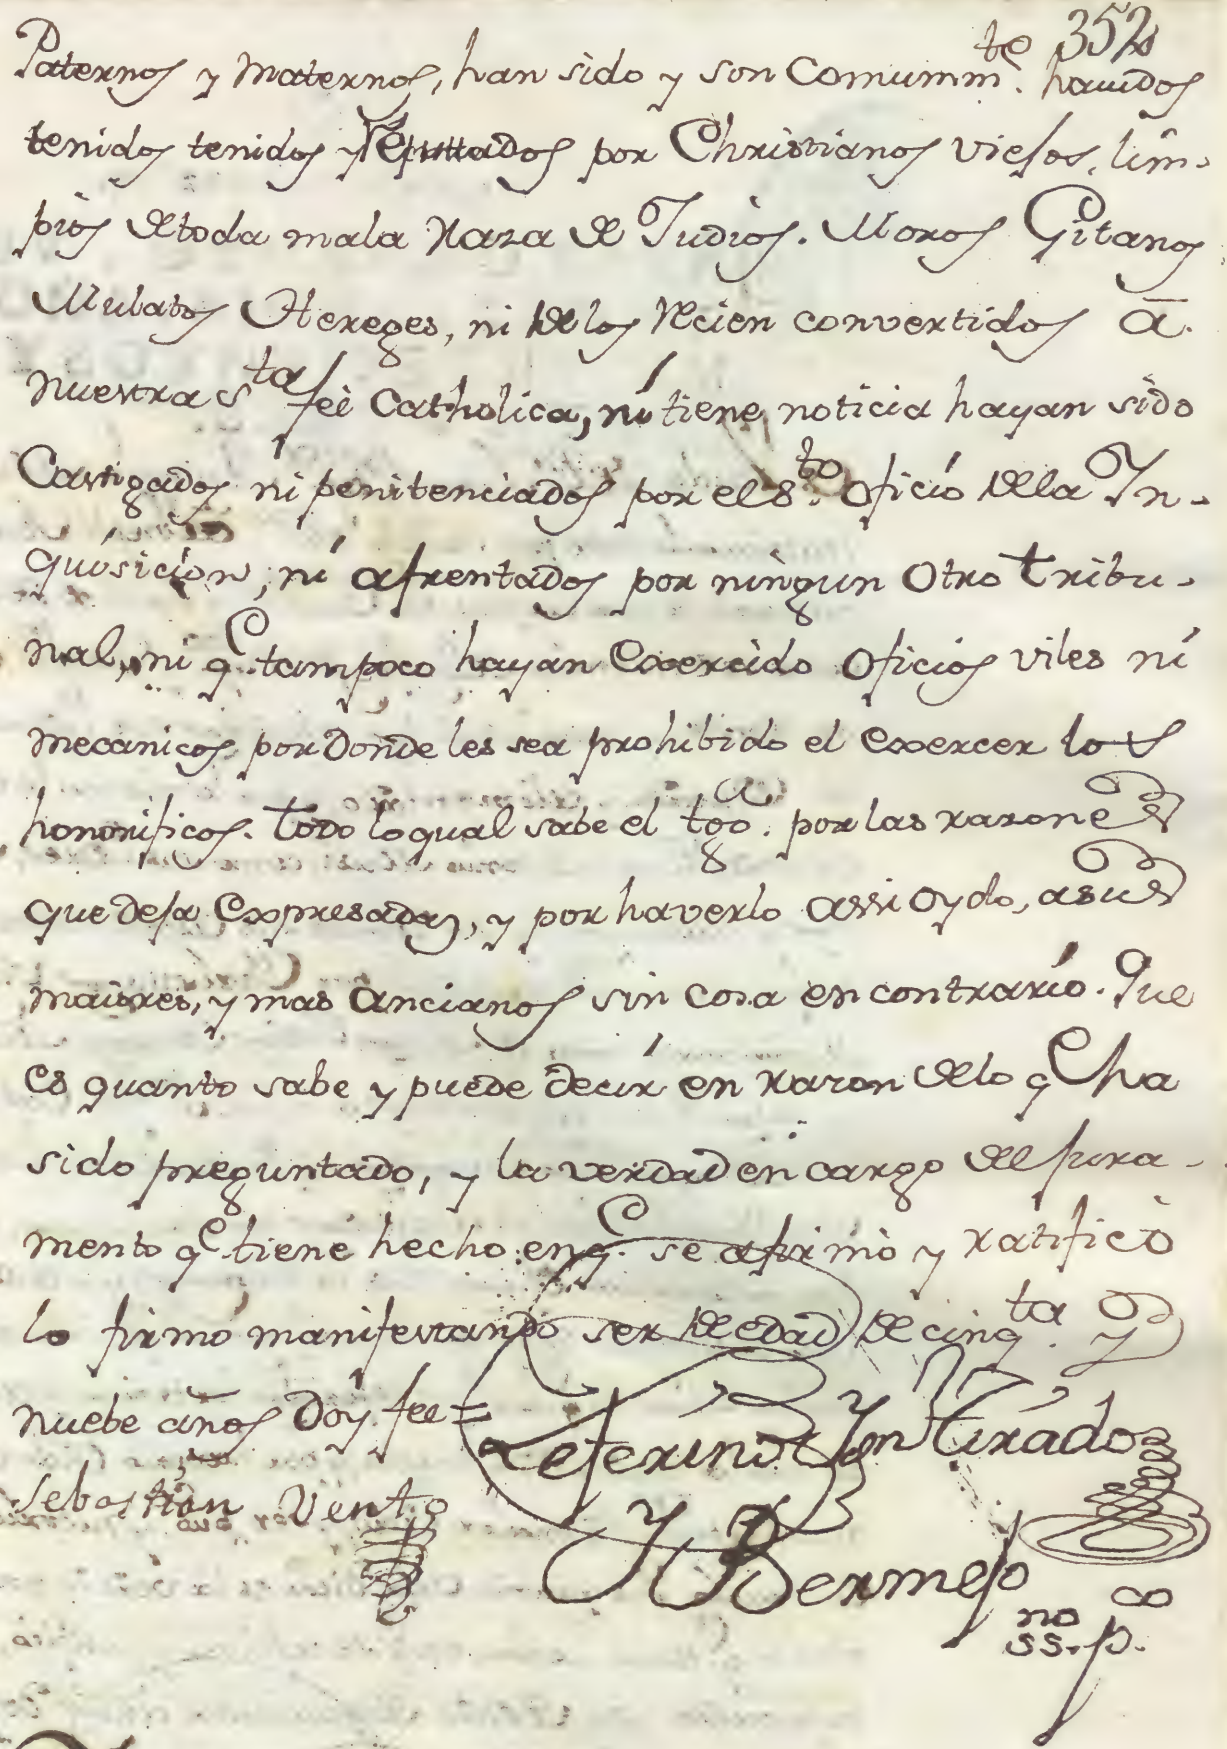 352
Paternos y Maternos, han sido y son Comunm.te havidos
tenidos tenidos y Reputtados por Christianos viejos, lim-
pios de toda mala Raza de Judios. Moros Gitanos
Mulatos Hereges, ni de los Recien convertidos â.
nuestra S.ta feè Catholica, ni tiene noticia hayan sido
Castigados ni penitenciados por el S.to Oficio de la In-
quisicion, ni afrentados por ningun Otro Tribu-
nal, ni q.e tampoco hayan Exercido Oficios viles ni
mecanicos por donde les sea prohibido el Exercer los
honorificos. Todo lo qual sabe el tgo. por las razones
que deja Expresadas, y por haverlo assi Oydo, a sus
maiores, y mas Ancianos sin cosa en contrario. Que
es quanto sabe y puede decir en razon de lo q.e ha
sido preguntado, y la verdad en cargo del jura-
mento q.e tiene hecho en q.e se afirmò y ratificò
lo firmó manifestando ser de edad de cinq.ta y
nuebe años Doy fee =
Zeferino Tirádo
Sebastian Vento
y Bermejo
no co
ss. p.